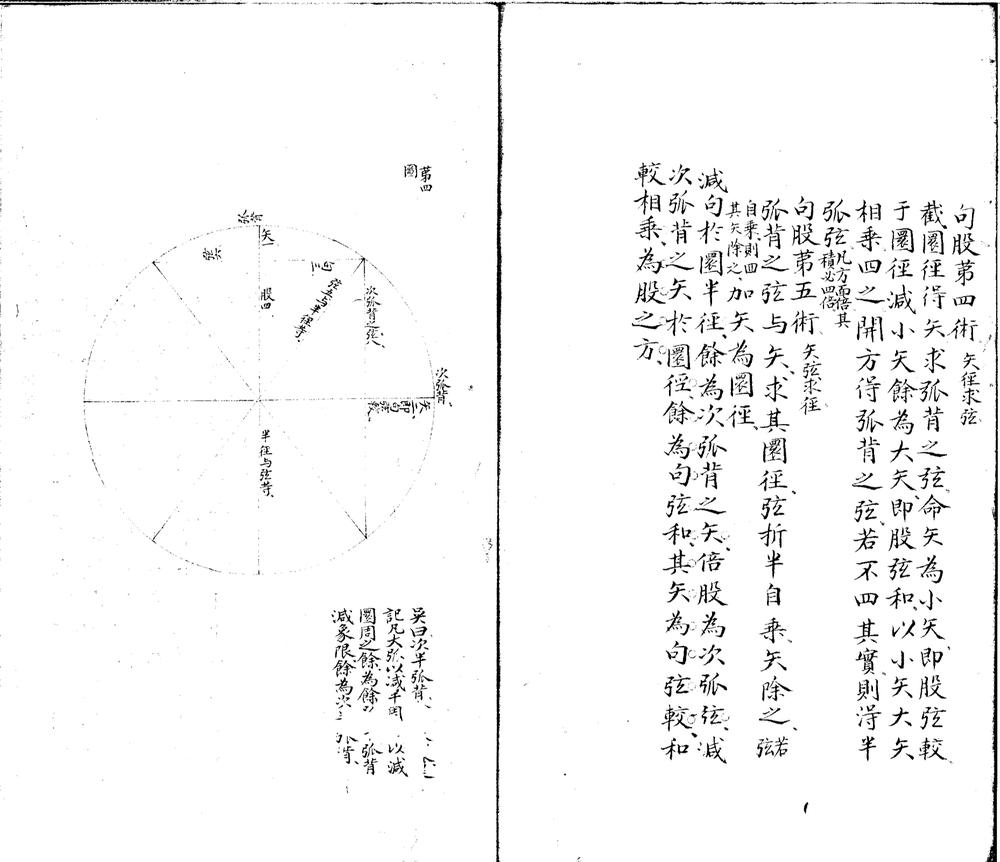 句股第四術 矢徑求弦
截圜徑得矢求弧背之弦命矢為小矢即股弦較
于圜徑減小矢餘為大矢即股弦和以小矢大矢
相乘四之開方得弧背之弦若不四其實則淂半
弧弦凡方面倍其積必四倍
句股第五術 矢弦求徑
弧背之弦与矢求其圜徑弦折半自乘矢除之若弦
自乘則四其矢除之加矢為圜徑
減句於圜半徑餘為次弧背之矢倍股為次弧弦減
次弧背之矢於圜徑餘為句弦和其矢為句弦較和
較相乘為股之方
第四圖
矢一
句三
弦五与半徑等
股四
次弧背之弦八
次弧背
半徑与弦等
吴曰次半弧背
記凡大弧以減半周 以減
圜周之餘為餘 弧背
減象限餘為次